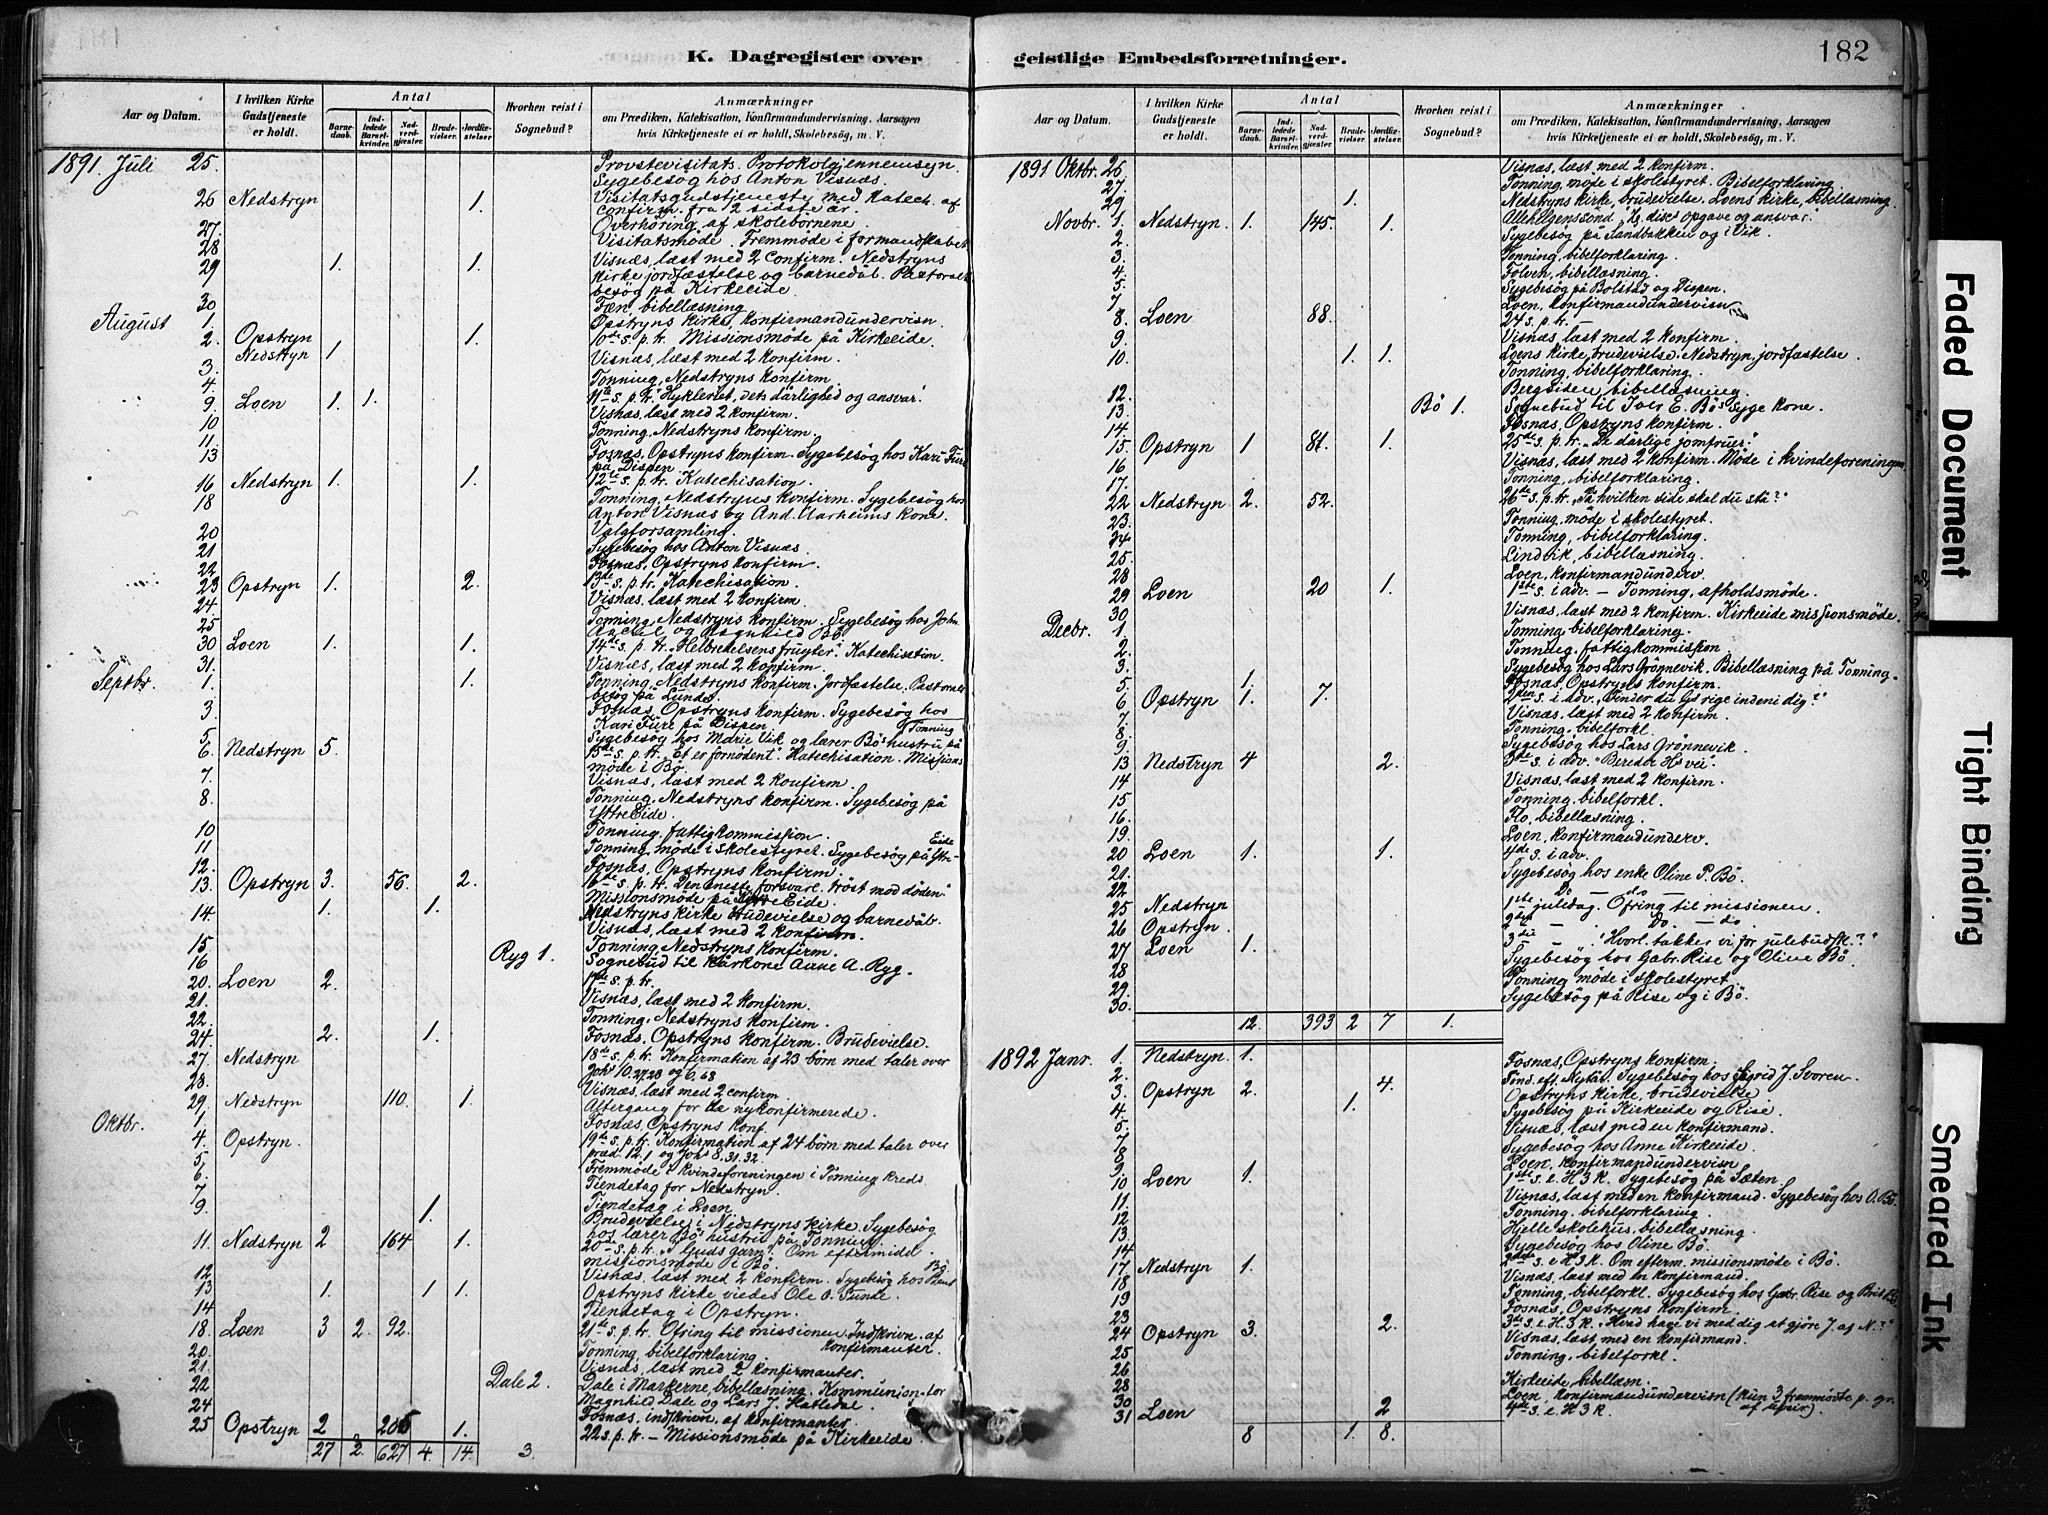 K. Dagregister over geistlige Embedsforretninger.
182
Aar og Datum. I hvilken Kirke Gudstjeneste er holdt. Antal Barnedaab. Indledede Barselkvinder. Nadverdgjæster. Brudevielser. Jordfæstelser. Hvorhen reist i Sognebud? Anmærkninger om Prædiken, Katekisation, Konfirmandundervisning, Aarsagen hvis Kirketjeneste ei er holdt, Skolebesøg, m. V.
1891 Juli 25. Provstevisitats. Protokolgjennemsyn.
Sygebesøg hos Anton Visnæs.
26 Nedstryn 1. Visitatsgudstjeneste med Katech. af
confirm. fra 2 sidste år.
27. Overhøring af skolebørnene
28 Visitatsmøde. Fremmøde i formandskabet
29 1. 1. Visnæs, læst med 2 confirm. Nedstryns
Kirke jordfæstelse og barnedåb.
besøg på Kirkeeide.
30 bibellæsning
August 1. Opstryns Kirke, Konfirmandundervisn.
2. Opstryn 1. 10de s. p. tr. Missionsmøde på Kirkeeide.
Nedstryn 1
3. Visnæs, læst med 2 konfirm.
4. Tonning, Nedstryns konfirm.
9. Loen 1. 1. 11te s. p. tr. "Hykleriet, dets dårlighed og ansvar."
10 Visnæs, læst med 2 konfirm.
11. Tonning, Nedstryns konfirm.
13 Fosnæs, Opstryns konfirm. Sygebesøg hos Kari Fure
på Dispen
16 Nedstryn 1. 1. 12te s. p. tr. Katechisation
18 Tonning, Nedstryns konfirm. Sygebesøg hos
Anton Visnæs og And. Aarheims kone.
20 Valgforsamling.
21 Sygebesøg hos Anton Visnæs.
22 Fosnæs, Opstryns konfirm.
23 Opstryn 1. 2. 13de s. p. tr. Katechisation.
24. Visnæs, læst med 2 konfirm.
25 Tonning, Nedstryns konfirm. Sygebesøg hos John
og Ragnhild Bø
30 Loen 1. 1. 14de s. p. tr. "Helbredelsens frugter." Katechisation.
31. Visnæs, læst med 2 konfirm.
Septbr. 1. 1. Tonning, Nedstryns konfirm. Jordfæstelse.
besøg på Lunde
3. Fosnæs, Opstryns konfirm. Sygebesøg hos
Kari Fure på Dispen
5. Sygebesøg hos Marie Vik og lærer Bøs hustru på Tonning
6. Nedstryn 5. 15de s. p. tr. "Et er fornødent". Katechisation. Missions
møde i Bø
7. Visnæs, læst med 2 konfirm.
8. Tonning, Nedstryns konfirm. Sygebesøg på
Yttreeide.
10 Tonning, fattigkommission.
11 Tonning, møde i skolestyret. Sygebesøg på Ytre-Eide
12. Fosnæs, Opstryns konfirm.
13. Opstryn 3. 56. 2. 16de s. p. tr. Den eneste forsvarl. trøst mod døden
Missionsmøde på Eide.
14 1. 1. Nedstryns kirke brudevielse og barnedåb.
Visnæs, læst med 2 konfirm.
15. Tonning, Nedstryns konfirm.
16 Ryg 1. Sognebud til kårkone Anne A. Ryg.
20. Loen 2. 17te s. p. tr.
21. Visnæs, læst med 2 konfirm.
22. Tonning, Nedstryns konfirm.
24. 2. 1. Fosnæs, Opstryns konfirm. Brudevielse.
27. Nedstryn 18de s. p. tr. Konfirmation af 23 børn med taler over
Joh: 10.27.28 og 6.68
28. Visnæs, læst med 2 confirm.
29. Nedstryn 110. 1. Altergang for de nykonfirmerede.
Oktbr. 1. Fosnæs, Opstryns konf.
4. Opstryn. 19de s. p. tr. Konfirmation af 24 børn med taler over
præd. 12.1 og Joh: 8.31.32
5. Fremmøde i Kvindeforeningen i Tonning kreds.
6. Tiendetag for Nedstryn.
7 Tiendetag i Loen
9. 1. Brudevielse i Nedstryns kirke. Sygebesøg
hos lærer Bøs hustru på Tonning.
11. Nedstryn 2 164 1. 20de s. p. tr. "I Guds garn". Om eftermidd.
missionsmøde i Bø.
12 Visnæs, læst med 2 konfirm. Sygebesøg hos Bø.
13 1. 1 1. Opstryns kirke viedes Ole O. Sunde.
14 Tiendetag i Opstryn.
18. Loen 3 2. 92. 21de s. p. tr. Ofring til missionen. Indskrivn. af
konfirmanter.
20. Tonning, bibelforklaring.
21. Visnæs, læst med 2 konfirmanter.
22 Dale 2. Dale i Markerne, bibellæsning. Kommunion for
Magnhild Dale og Lars J. Hatledal
24 Fosnæs, indskrivn. af konfirmanter.
25 Opstryn 2 205 1. 22 s. p. tr. – Missionsmøde på Kirkeeide.
27 2. 627 4. 14. 3.
Aar og Datum. I hvilken Kirke Gudstjeneste er holdt. Antal Barnedaab. Indledede Barselkvinder. Nadverdgjæster. Brudevielser. Jordfæstelser. Hvorhen reist i Sognebud? Anmærkninger om Prædiken, Katekisation, Konfirmandundervisning, Aarsagen hvis Kirketjeneste ei er holdt, Skolebesøg, m. V.
1891. Oktbr. 26 Visnæs, læst med 2 konfirm.
27. Tonning, møde i skolestyret. Bibelforklaring
29 1. Nedstryns kirke, brudevielse. Loens kirke, bibellæsning
Novbr. 1. Nedstryn 1. 145. 1. Allehelgenssønd. "Hs. disc. opgave og ansvar."
2. Sygebesøg på Sandbakken og i Vik.
3. Tonning, bibelforklaring.
4. Folven, bibellæsning.
5. Sygebesøg på Bolstad og Dispen.
7 Loen, konfirmandundervisn
8. Loen 88. 24 s. p. tr. –
9. Visnæs, læst med 2 konfirm.
10. 1 1. Loens kirke, brudevielse. Nedstryn, jordfæstelse.
Tonning, bibelforklaring.
12. bibellæsning.
13. Bø 1. Sognebud til Iver E. Bøs syge kone.
14 Fosnæs, Opstryns konfirm.
15. Opstryn 1 81. 1. 25de s. p. tr. "De dårlige jomfruer."
16. Visnæs, læst med 2 konfirm. Møde i kvindeforeningen
17. Tonning, bibelforklaring.
22 Nedstryn 2. 52. 26de s. p. tr. "På hvilken side skal du stå?"
23. Tonning, møde i skolestyret.
24 Tonning, bibelforklaring.
25. Lindvik, bibellæsning.
28 Loen, konfirmandunderv.
29 Loen 20 1. 1ste s. i adv. – Tonning, afholdsmøde.
30. Visnæs, læst med 2 konfirm. Kirkeeide missionsmøde.
Decbr. 1. Tonning, bibelforklaring.
2. Tonning, fattigkommission
3. Sygebesøg hos Lars Grønnevik. Bibellæsning på Tonning.
5. 1. Fosnæs, Opstryns konfirm.
6 Opstryn 1. 7. 2den s. i adv. "Kender du Gs rige indeni dig?"
7. Visnæs, læst med 2 konfirm.
8. Tonning, bibelforkl.
9. Sygebesøg hos Lars Grønnevik.
13 Nedstryn 4 2. 3die s. i adv. "Bereder Hs vei".
14 Visnæs, læst med 2 konfirm.
15 Tonning, bibelforkl.
16. Flo, bibellæsning.
19. Loen, konfirmandunderv.
20 Loen 1. 1. 4de s. i adv.
21. Sygebesøg hos enke Oline P. Bø.
22 Do – do –
25 Nedstryn 1ste juledag. Ofring til missionen.
26 Opstryn. 2den – Do. – do
27 Loen 1. 3die – "Hvorl. takker vi for julebudsk.?"
28 Sygebesøg hos Gabr. Rise og Oline Bø
29. Tonning møde i skolestyret
30. Sygebesøg på Rise og i Bø.
12. 393 2 7 1.
1892 Janr. 1. Nedstryn. 1. Fosnæs, Opstryns konfirm.
2. Sønd. eft. Nytår. Sygebesøg hos Sigrid J. Svoren.
3. Opstryn 2. 4. Opstryns kirke, brudevielse
4. 1. Sygebesøg på Kirkeeide og Rise.
5. Visnæs, læst med en konfirmand.
7 Sygebesøg hos Anne Kirkeeide
9. Loen, konfirmandundervisn
10 Loen 1. 1ste s. e. H3K. Sygebesøg på Sæten.
11. Visnæs, læst med en konfirmand. Sygebesøg hos O. Bø.
12 Tonning, bibelforklaring.
13. Hjelle skolehus, bibellæsning.
14 Sygebesøg hos Oline Bø.
17 Nedstryn 1. 2den s. e. H3K. Om efterm. missionsmøde i Bø.
18 Visnæs, læst med en konfirmand.
19 Tonning, bibelforkl. Sygebesøg hos Gabr. Rise og
23 Fosnæs, Opstryns konfirm.
24 Opstryn 3. 2. 3die s. e. H3K. "Hvad have vi med dig at gjøre J. af N.?"
25 Visnæs, læst med en konfirmand.
26 Tonning, bibelforkl.
28 Kirkeeide, bibellæsn.
30 Loen, konfirmandundervisn (kun 3 fremmødte p. gr.
31 Loen 2 4de s. e. H3K. af veir).
8 1. 8.
Faded Document
Tight Binding
Smeared Ink